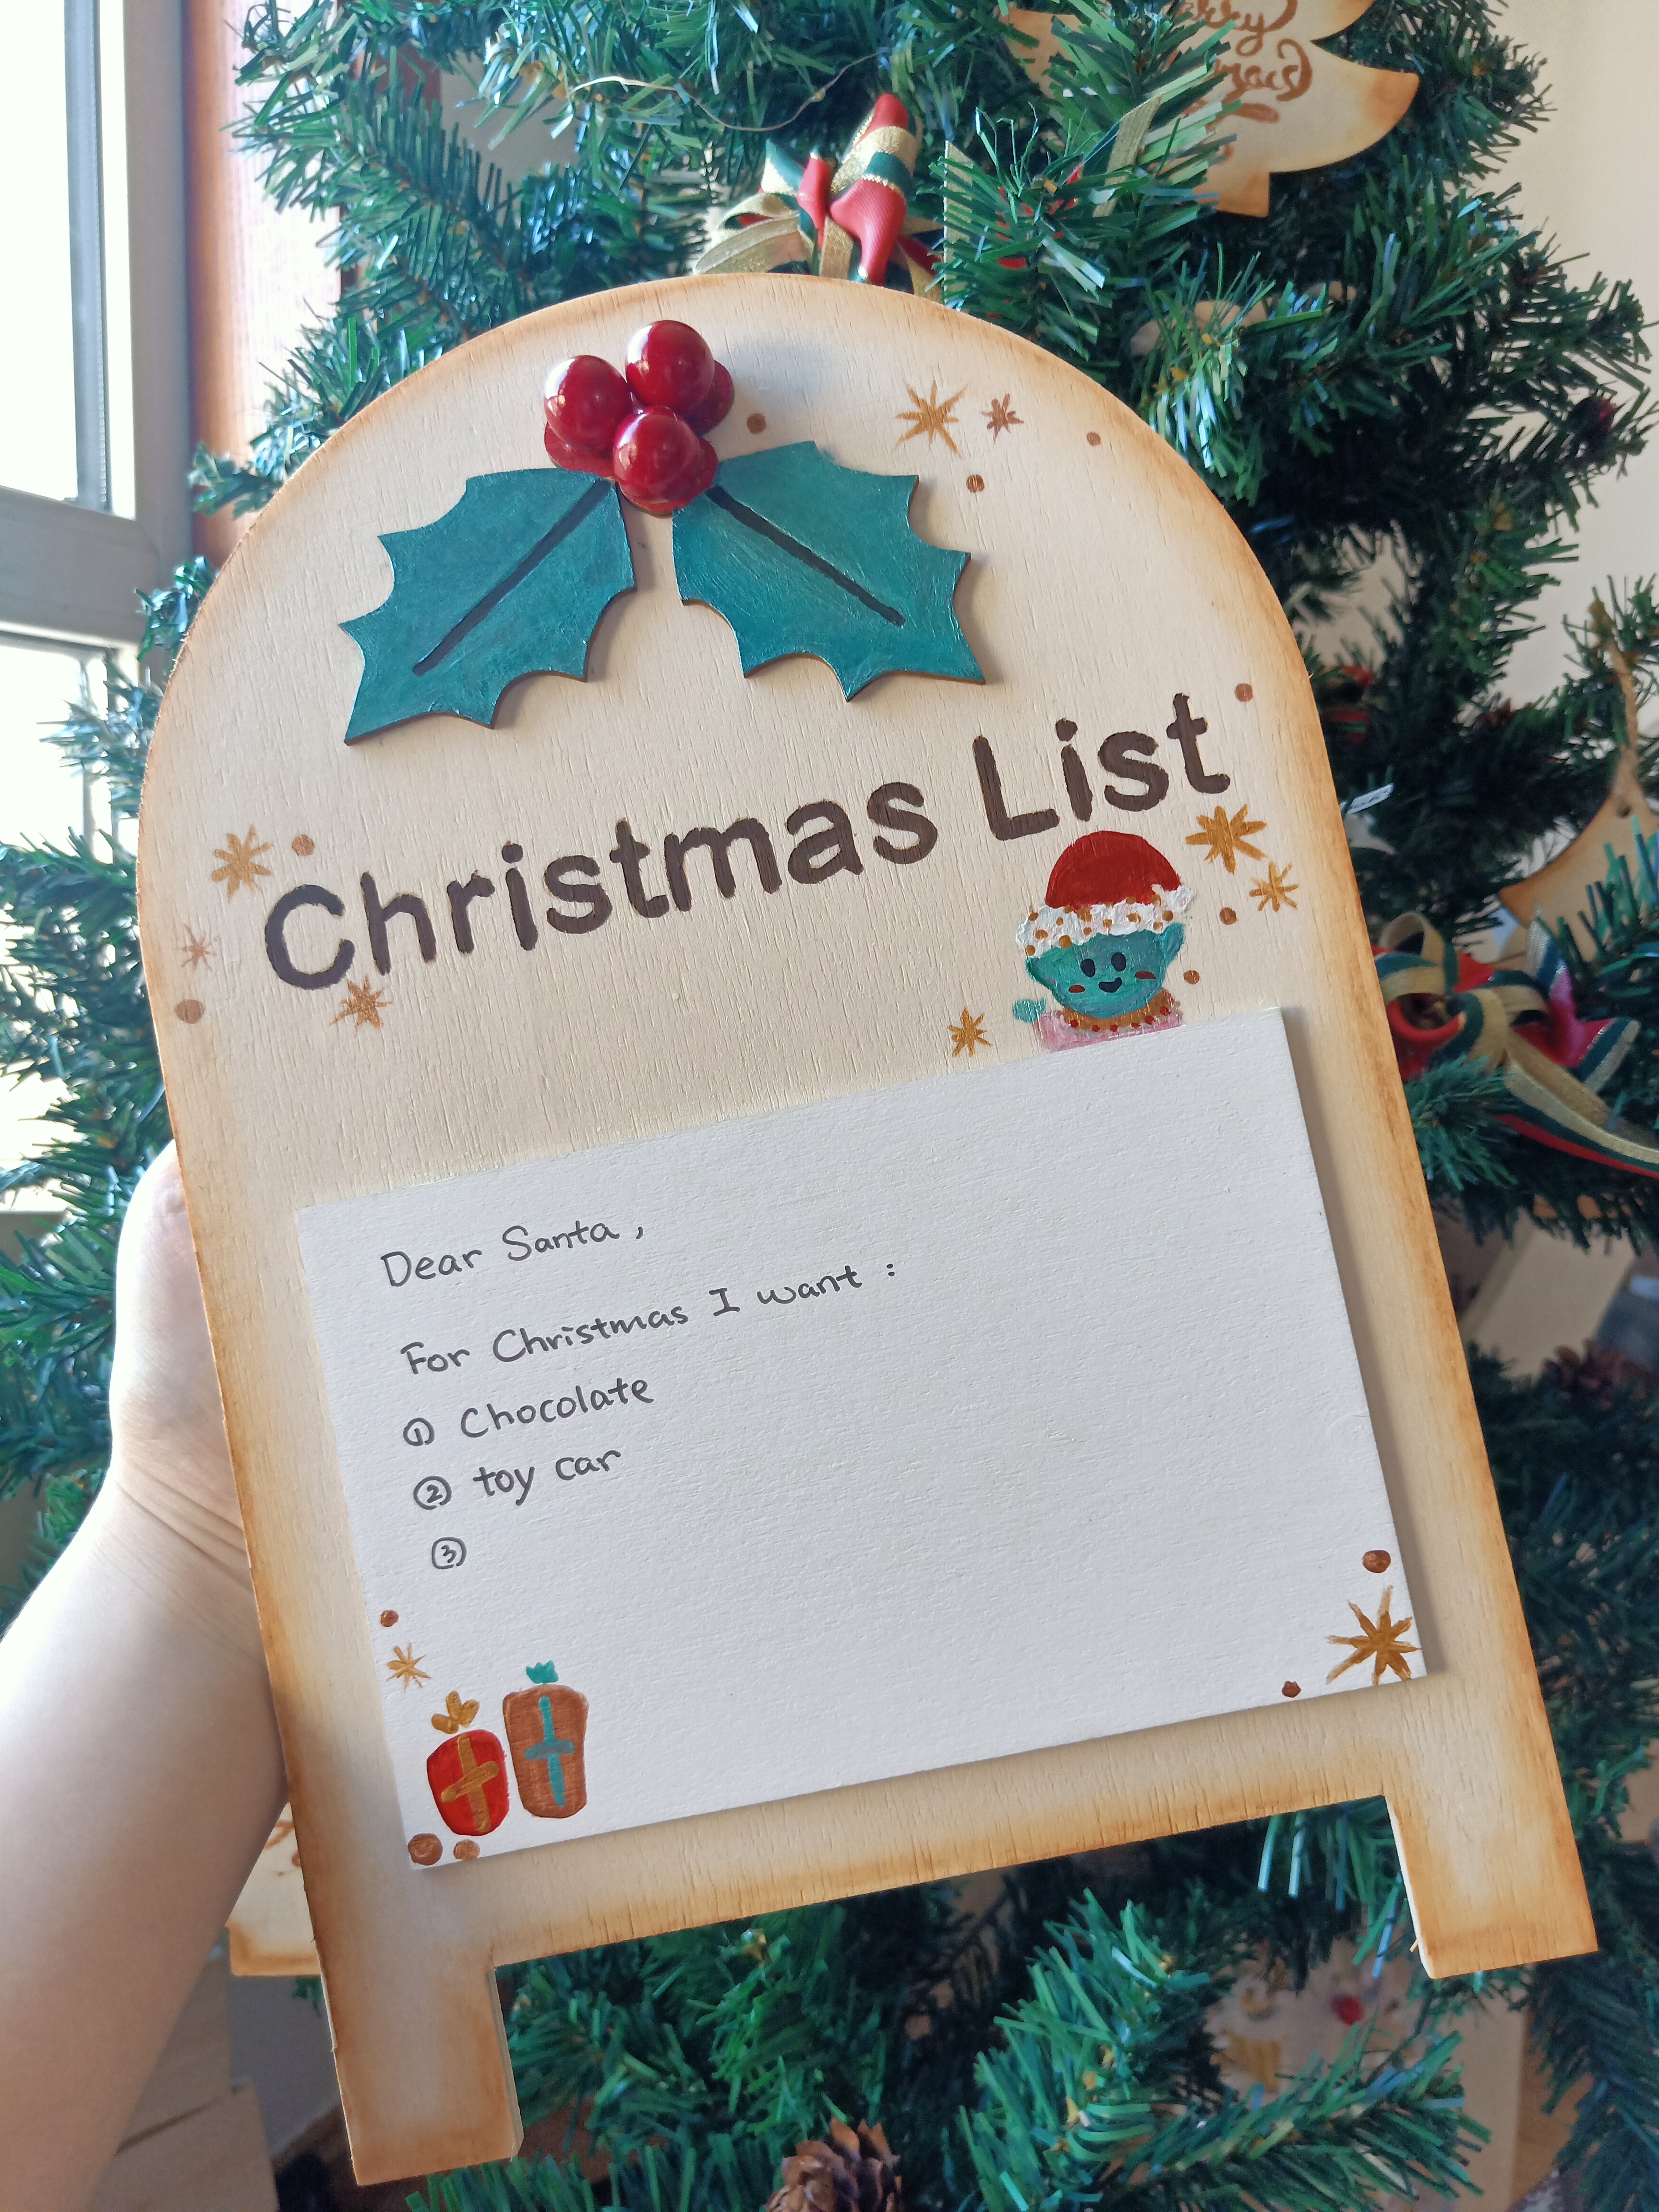 Christmas List
Dear Santa,
For Christmas I want :
① Chocolate
② toy car
③